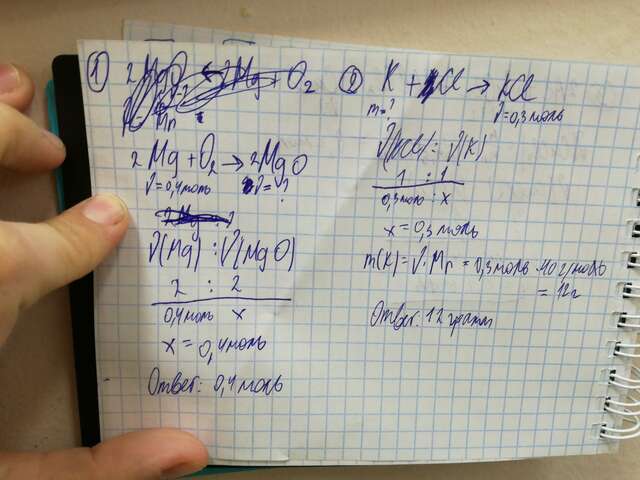 1) 2MgO ← 2Mg + O₂
2Mg + O₂ → 2MgO
ν=0,4моль ν=?
ν(Mg) : ν(MgO)
2 : 2
0,4моль x
x = 0,4моль
Ответ: 0,4моль
2) K + Cl → KCl
m=? ν=0,3моль
ν(KCl) : ν(K)
1 : 1
0,3моль : x
x = 0,3моль
m(K) = ν·Mr = 0,3моль · 40г/моль
= 12г
Ответ: 12 грамм